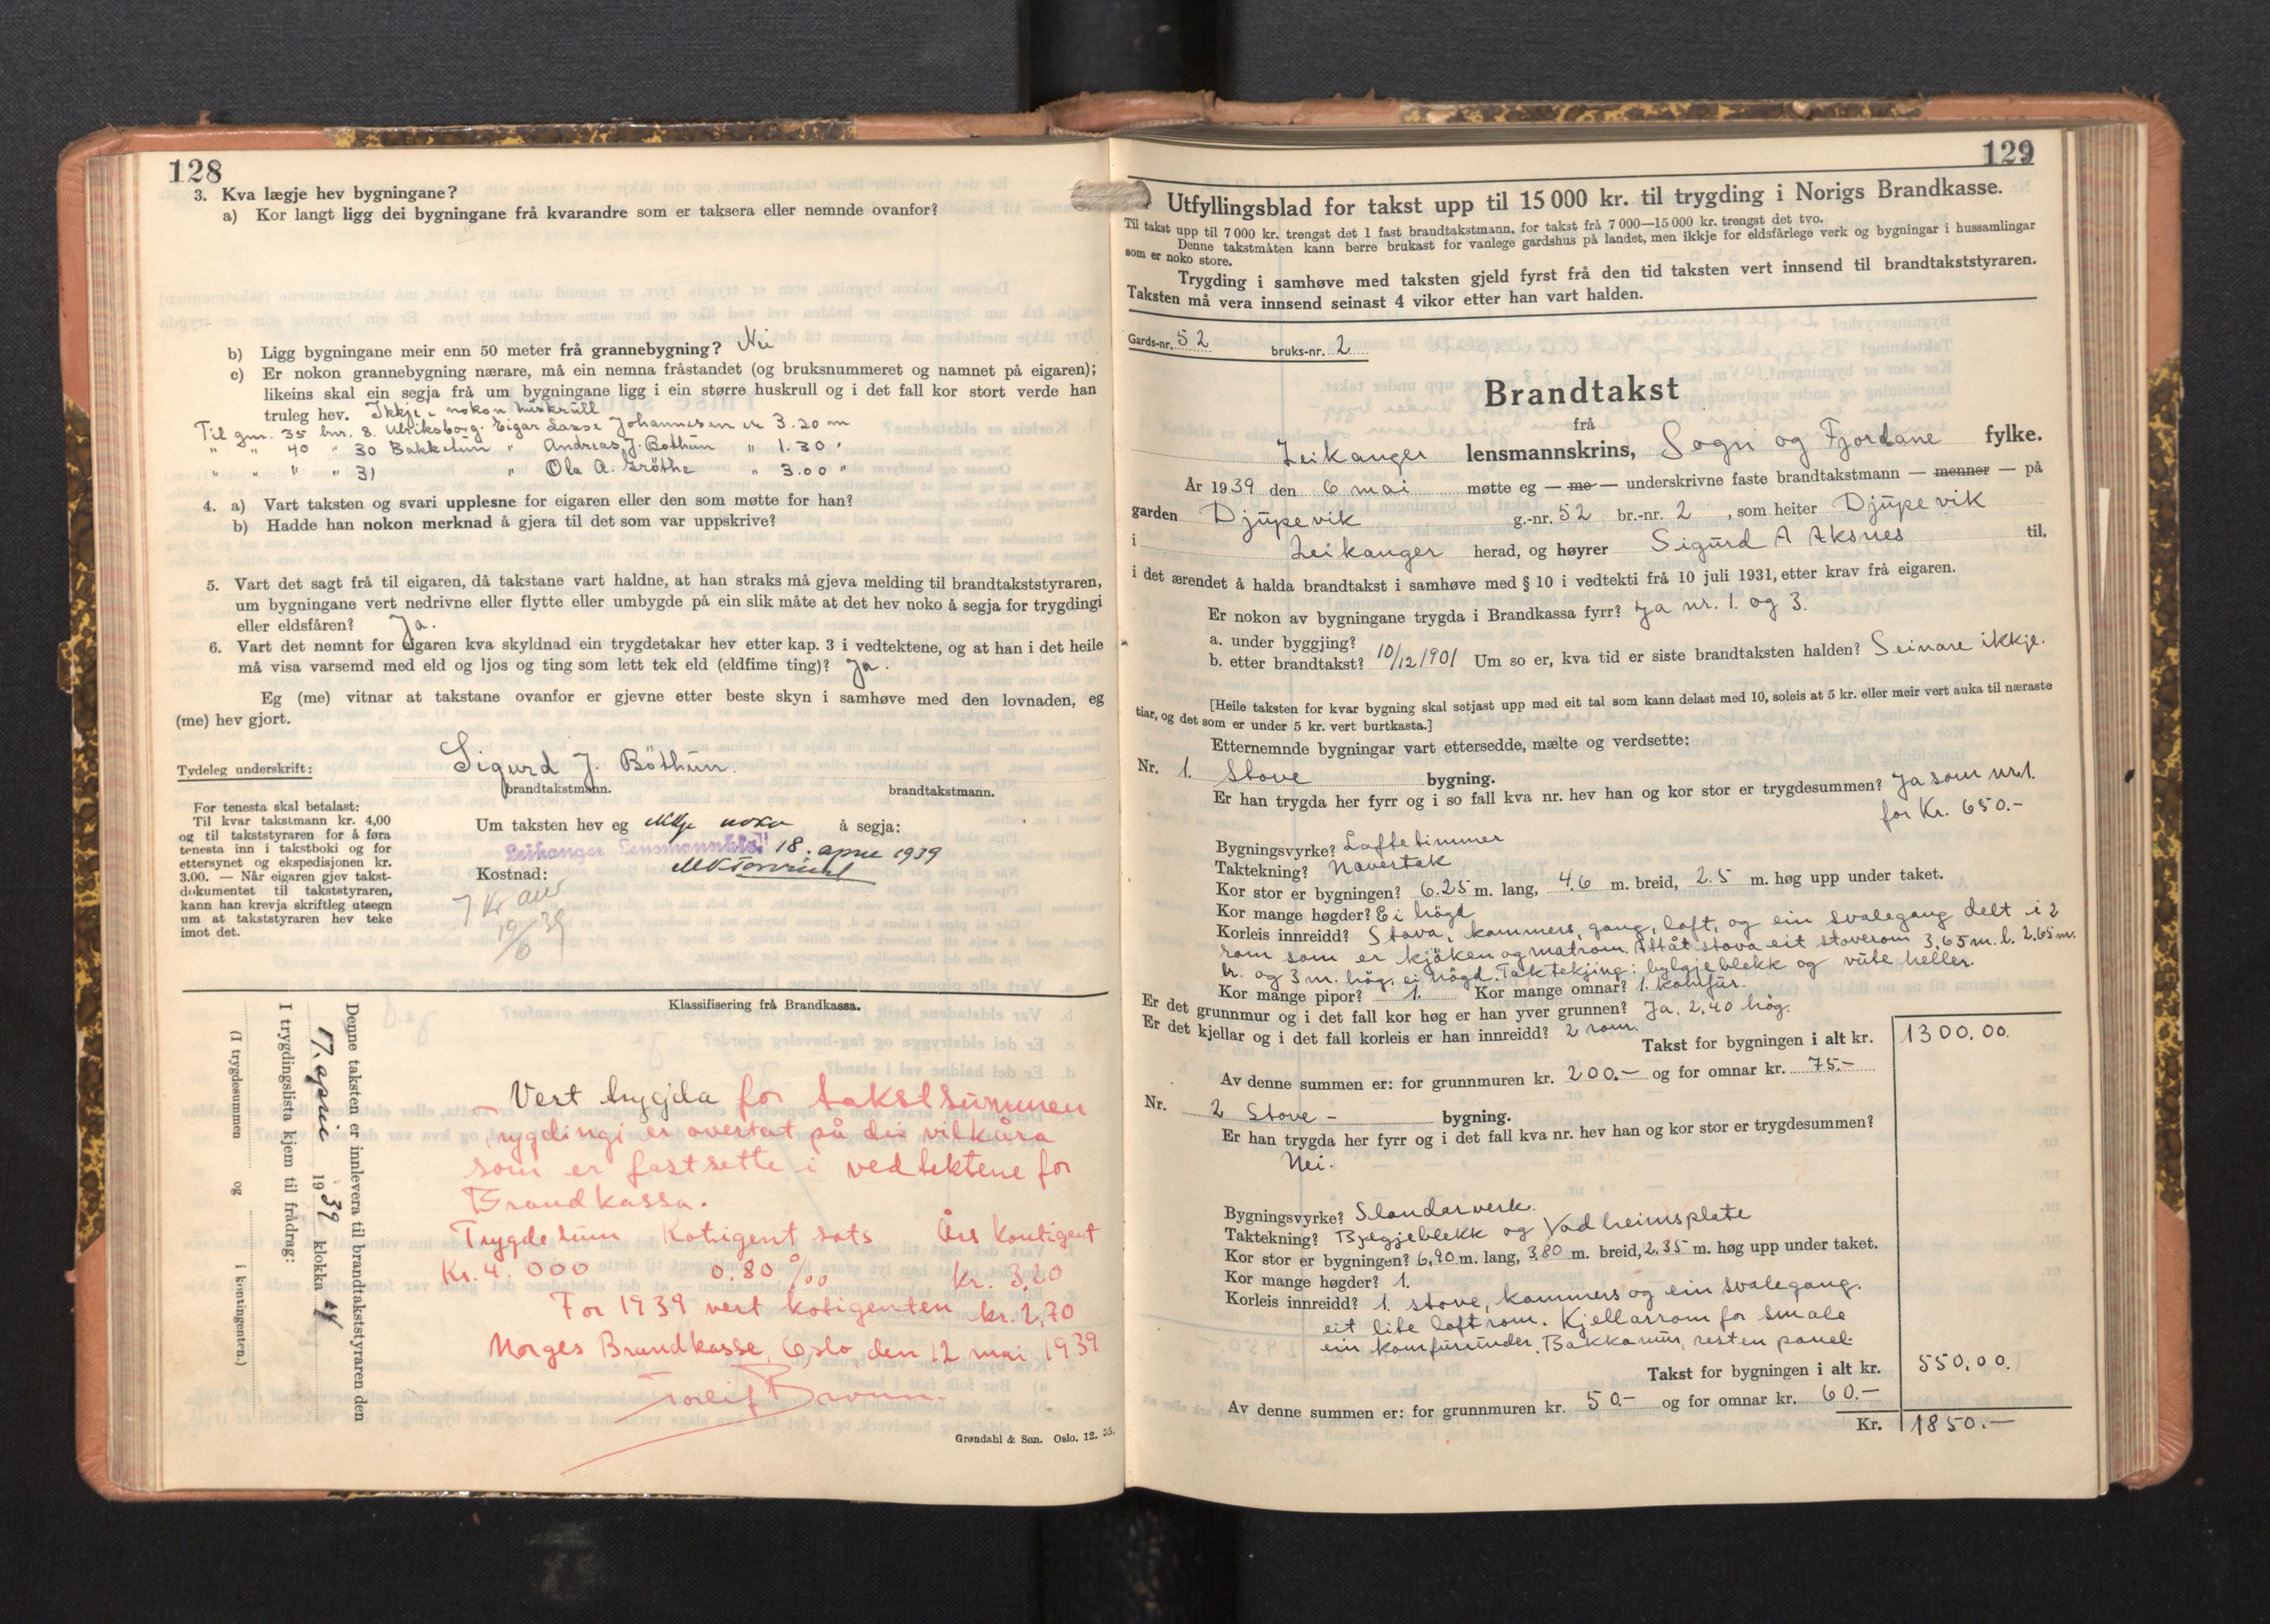 128
3. Kva lægje hev bygningane?
a) Kor langt ligg dei bygningane frå kvarandre som er taksera eller nemnde ovanfor?
b) Ligg bygningane meir enn 50 meter frå grannebygning? Nei
c) Er nokon grannebygning nærare, må ein nemna fråstandet (og bruksnummeret og namnet på eigaren);
likeins skal ein segja frå um bygningane ligg i ein større huskrull og i det fall kor stort verde han
truleg hev. Ikkje i nokon huskrull
Til gnr. 35 bnr. 8. Ulriksborg. Eigar Lasse Johannesen er 3.20 m
" " 40 " 30 Bakketun " Andreas J. Bøthun " 1.30 "
" " " " 31 " Ola A. Grøthe " 3.00 "
4. a) Vart taksten og svari upplesne for eigaren eller den som møtte for han?
b) Hadde han nokon merknad å gjera til det som var uppskrive?
5. Vart det sagt frå til eigaren, då takstane vart haldne, at han straks må gjeva melding til brandtakststyraren,
um bygningane vert nedrivne eller flytte eller umbygde på ein slik måte at det hev noko å segja for trygdingi
eller eldsfåren? Ja.
6. Vart det nemnt for eigaren kva skyldnad ein trygdetakar hev etter kap. 3 i vedtektene, og at han i det heile
må visa varsemd med eld og ljos og ting som lett tek eld (eldfime ting)? Ja.
Eg (me) vitnar at takstane ovanfor er gjevne etter beste skyn i samhøve med den lovnaden, eg
(me) hev gjort.
Tydeleg underskrift: Sigurd J. Bøthun.
brandtakstmann. brandtakstmann.
For tenesta skal betalast:
Til kvar takstmann kr. 4,00
og til takststyraren for å føra
tenesta inn i takstboki og for
ettersynet og ekspedisjonen kr.
3.00. — Når eigaren gjev takst-
dokumentet til takststyraren,
kann han krevja skriftleg utsegn
um at takststyraren hev teke
imot det.
Um taksten hev eg ikkje noko å segja:
Leikanger Lensmannskt. 18. april 1939
Kostnad:
7 kr
19/6 39
Klassifisering frå Brandkassa.
Denne taksten er innlevera til brandtakststyraren den
17. april 1939 klokka
I trygdingslista kjem til frådrag:
(I trygdesummen og i kontingenten.)
Vert trygda for takstsummen
rygdingi er overtat på dei vilkåra
som er fastsette i vedtektene for
Brandkassa.
Trygdesum Kotigent sats Års kontigent
Kr. 4.000 0.80 ‰ kr. 3,20
For 1939 vert kotigenten kr. 2,70
Norges Brandkasse, Oslo, den 12 mai 1939
Grøndahl & Søn. Oslo. 12. 35.
129
Utfyllingsblad for takst upp til 15 000 kr. til trygding i Norigs Brandkasse.
Til takst upp til 7 000 kr. trengst det 1 fast brandtakstmann, for takst frå 7 000—15 000 kr. trengst det tvo.
Denne takstmåten kann berre brukast for vanlege gardshus på landet, men ikkje for eldsfårlege verk og bygningar i hussamlingar
som er noko store.
Trygding i samhøve med taksten gjeld fyrst frå den tid taksten vert innsend til brandtakststyraren.
Taksten må vera innsend seinast 4 vikor etter han vart halden.
Gards-nr. 52 bruks-nr. 2
Brandtakst
frå
Leikanger lensmannskrins, Sogn og Fjordane fylke.
År 1939 den 6 mai møtte eg — me — underskrivne faste brandtakstmann — menner — på
garden Djupevik g.-nr. 52 br.-nr. 2, som heiter Djupevik
i Leikanger herad, og høyrer Sigurd A Aksnes til,
i det ærendet å halda brandtakst i samhøve med § 10 i vedtekti frå 10 juli 1931, etter krav frå eigaren.
Er nokon av bygningane trygda i Brandkassa fyrr? Ja nr. 1. og 3.
a. under byggjing?
b. etter brandtakst? 10/12 1901 Um so er, kva tid er siste brandtaksten halden? Seinare ikkje.
[Heile taksten for kvar bygning skal setjast upp med eit tal som kann delast med 10, soleis at 5 kr. eller meir vert auka til næraste
tiar, og det som er under 5 kr. vert burtkasta.]
Etternemnde bygningar vart ettersedde, mælte og verdsette:
Nr. 1. Stove bygning.
Er han trygda her fyrr og i so fall kva nr. hev han og kor stor er trygdesummen? Ja som nr. 1.
for Kr. 650.-
Bygningsvyrke? Laftetimmer
Taktekning? Navertak
Kor stor er bygningen? 6.25 m. lang, 4.6 m. breid, 2.5 m. høg upp under taket.
Kor mange høgder? Ei högd
Korleis innreidd? Stova, kammers, gang, loft, og ein svalegang delt i 2
rom som er kjøken og matrom. Attåt stova eit stoverom 3.65 m. l. 2.65 m.
br. og 3 m. høg, ei högd. Taktekjing: bylgjeblekk og vute heller.
Kor mange pipor? 1. Kor mange omnar? 1. komfur.
Er det grunnmur og i det fall kor høg er han yver grunnen? Ja. 2,40 høg.
Er det kjellar og i det fall korleis er han innreidd? 2 rom.
Takst for bygningen i alt kr. 1300,00.
Av denne summen er: for grunnmuren kr. 200.- og for omnar kr. 75.-
Nr. 2 Stove - bygning.
Er han trygda her fyrr og i det fall kva nr. hev han og kor stor er trygdesummen?
Nei.
Bygningsvyrke? Standarverk.
Taktekning? Bylgjeblekk og Vadheimsplate
Kor stor er bygningen? 6,90 m. lang, 3.80 m. breid, 2.35 m. høg upp under taket.
Kor mange høgder? 1.
Korleis innreidd? 1. stove, kammers og ein svalegang.
eit lite loftrom. Kjellarrom for smale
ein komfur under. Bakkamur, resten panel.
Takst for bygningen i alt kr. 550,00.
Av denne summen er: for grunnmuren kr. 50.- og for omnar kr. 60.-
Kr. 1850.-